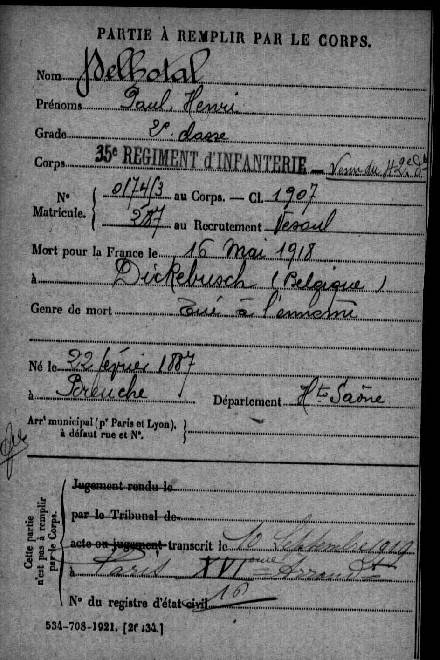 PARTIE À REMPLIR PAR LE CORPS.
Nom Delhotal
Prénoms Paul Henri
Grade 2e classe
Corps 35e RÉGIMENT d'INFANTERIE — Venu du
N° Matricule. { 01743 au Corps. — Cl. 1907
287 au Recrutement Vesoul
Mort pour la France le 16 Mai 1918
à Dickebusch (Belgique)
Genre de mort Tué à l'ennemi
Né le 22 février 1887
à Département Hte Saône
Arrt municipal (pr Paris et Lyon),
à défaut rue et N°.
Cette partie n'est pas à remplir par le Corps.
Jugement rendu le
par le Tribunal de
acte ou jugement transcrit le 10 Septembre 1919
à Paris XVIème Arrondt
N° du registre d'état civil
534-708-1921. [26434.]